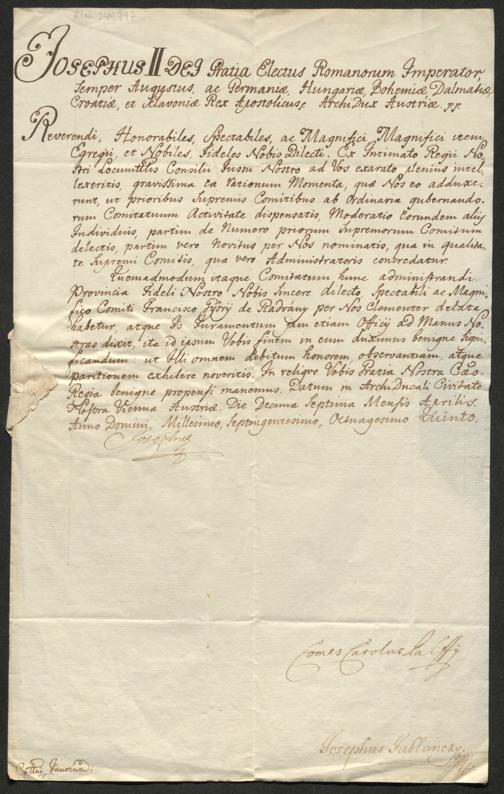 JOSEPHUS II DEI Gratia Electus Romanorum Imperator
Semper Augustus, ac Germaniæ, Hungariæ, Bohemiæ, Dalmatiæ
Croatiæ, et Slavoniæ Rex Apostolicus, ArchiDux Austriæ. pp.
Reverendi, Honorabiles, Spectabiles, ac Magnifici, Magnifici item,
Egregii, et Nobiles, Fideles Nobis Dilecti. Ex Intimato Regii No
stri Locumttlis Consilii Jussu Nostro ad Vos exarato plenius intel
lexeritis, gravissima ea Rationum Momenta, quæ Nos eo adduxe-
runt, ut prioribus Supremis Comitibus ab Ordinaria gubernando-
rum Comitatuum Activitate dispensatis, Moderatio eorundem aliis
Individuis, partim de Numero priorum Supremorum Comitum
delectis, partim vero Novitus per Nos nominatis, qua in qualita-
te Supremi Comitis, qua vero Administratoris concredatur.
Quemadmodum itaque Comitatum hunc administrandi
Provincia Fideli Nostro Nobis Sincere dilecto, Spectabili ac Magni-
fico Comiti Francisco Győri de Radvány per Nos Clementer delata
habetur, atque Is Juramentum jam etiam Officij ad Manus No
stras dixit, ita id ipsum Vobis finem in eum duximus benigne signi-
ficandum: ut Illi omnem debitum honorem, observantiam, atque
paritionem exhibere noveritis. In reliquo Vobis Gratia Nostra Cæo.
Regia benigne propensi manemus. Datum in ArchiDucali Civitate
Nostra Vienna Austriæ. Die Decima Septima Mensis Aprilis.
Anno Domini, Millesimo, Septingentesimo, Octuagesimo Quinto.
Josephus
Comes Carolus Palffy
Josephus Jablanczy.
Cottui Jaurien.